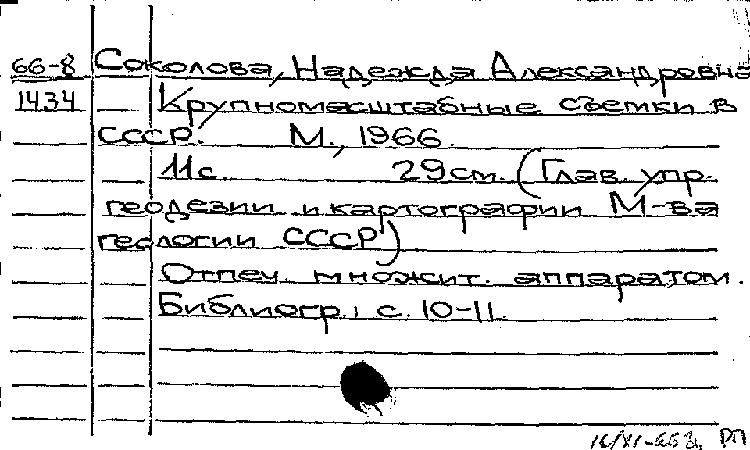 66-8 Соколова, Надежда Александровна
1434 Крупномасштабные съемки в
СССР. М., 1966.
11 с. 29 см. (Глав. упр.
геодезии и картографии М-ва
геологии СССР)
Отпеч. множит. аппаратом.
Библиогр.: с. 10-11.
РП